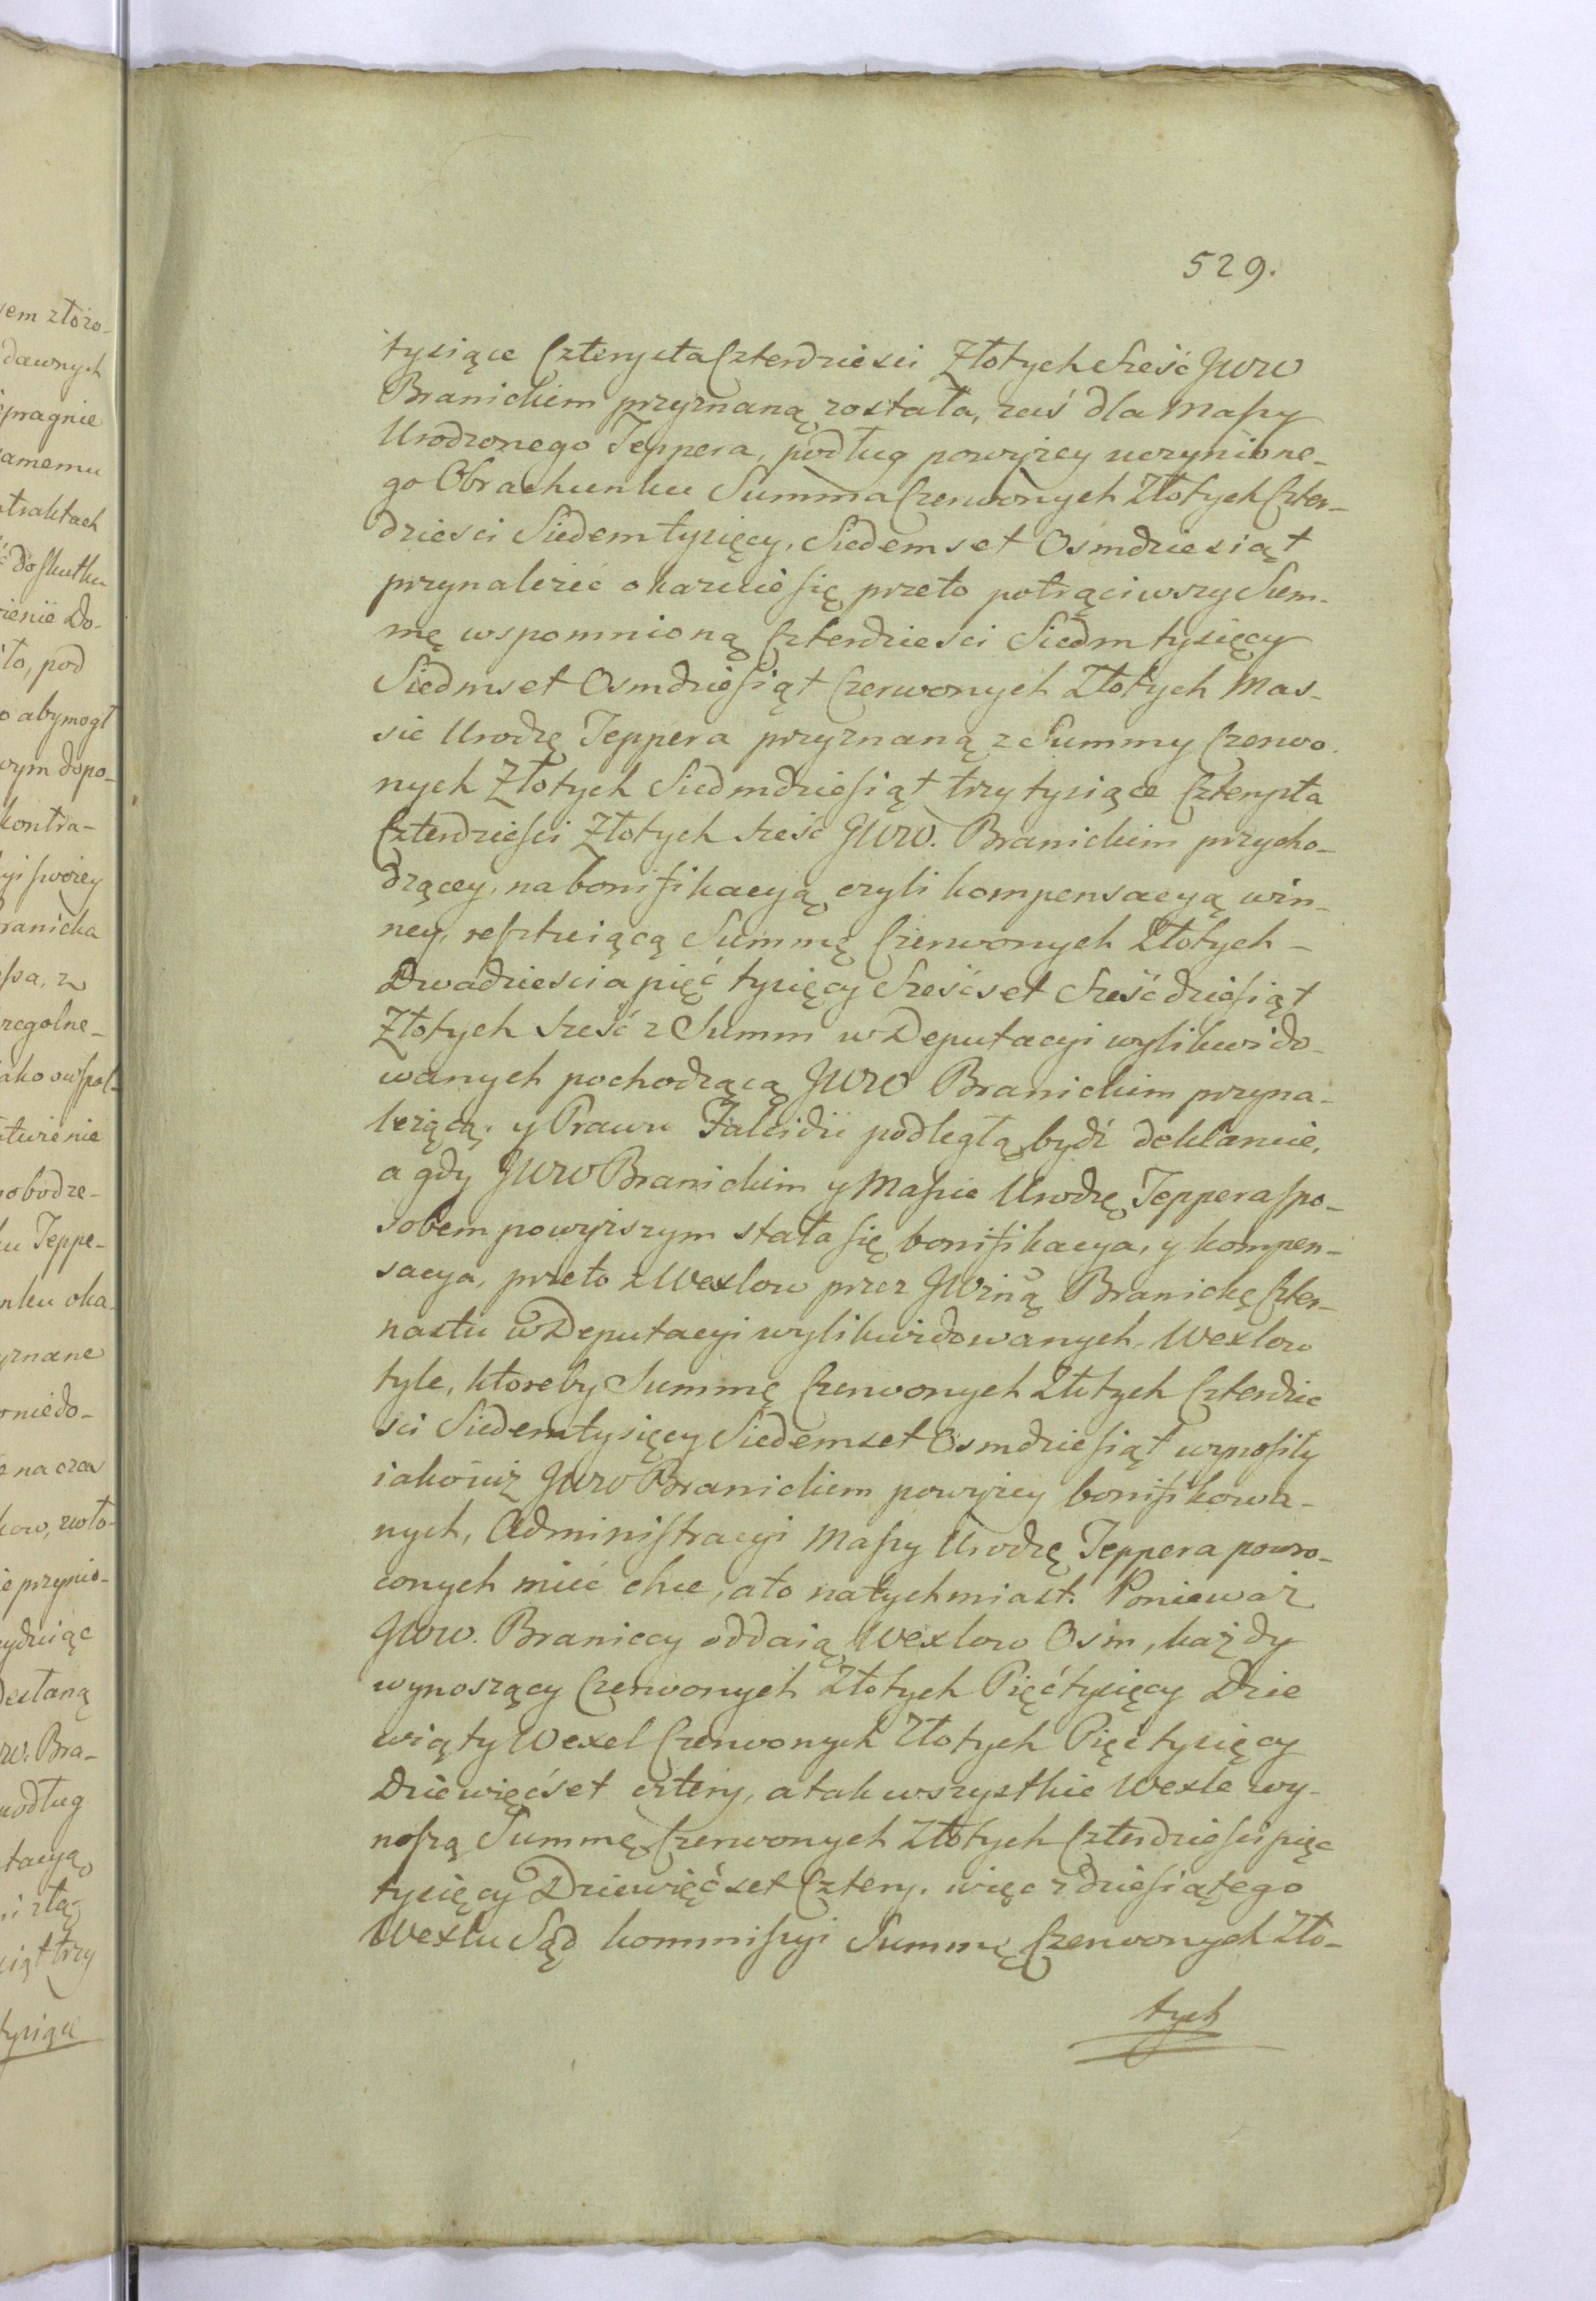 529.
tysiące Czterysta Czterdziesci Złotych sześć JWW
Branickim przyznaną została, zaś dla Massy
Urodzonego Teppera, podług powyżey uczynione-
go Obrachunku Summa Czerwonych Złotych Czter-
dziesci Siedem tysięcy, Siedemset Osmdziesiąt
przynależeć okazuie się przeto potrąciwszy Sum-
mę wspomnioną Czterdziesci Siedm tysięcy
Siedmset Osmdziesiąt Czerwonych Złotych Mas-
sie Urodzę Teppera przyznaną z Summy Czerwo-
nych Złotych Siedmdziesiąt trzy tysiące Czterysta
Czterdziesci Złotych sześć JWW. Branickim przycho-
dzącey, na bonifikacyą czyli kompensacyą win-
ney, resztuiącą Summę Czerwonych Złotych -
Dwadziescia pięć tysięcy Sześćset Sześćdziesiąt
Złotych sześć z Summ w Deputacyi wylikwido-
wanych pochodzącą JWW Branickim przyna-
leżącą, y Prawu Falcidii podległą bydź deklaruie,
a gdy JWW Branickim y Massie Urodzę Teppera spo-
sobem powyższym stała się bonifikacya, y kompen-
sacya, przeto z Wexlow przez JWżną Branickę Czter-
nastu w Deputacyi wylikwidowanych, Wexlow
tyle, ktoreby Summę Czerwonych Złotych Czterdzie
sci Siedem tysięcy Siedemset Osmdziesiąt wynosiły
iako iuż JWW Branickim powyżey bonifikowa-
nych, Administracyi Massy Urodzę Teppera powro-
conych mieć chce, a to natychmiast. Ponieważ
JWW. Braniccy oddaią Wexlow Osm, każdy
wynoszący Czerwonych Złotych Pięć tysięcy Dzie
wiąty Wexel Czerwonych Złotych Pięć tysięcy
Dziewięćset cztery, a tak wszystkie Wexle wy-
noszą Summę Czerwonych Złotych Czterdziesci pięc
tysięcy Dziewięćset Cztery. więc z dziesiątego
Wexlu Sąd kommissyi Summę Czerwonych Zło-
tych